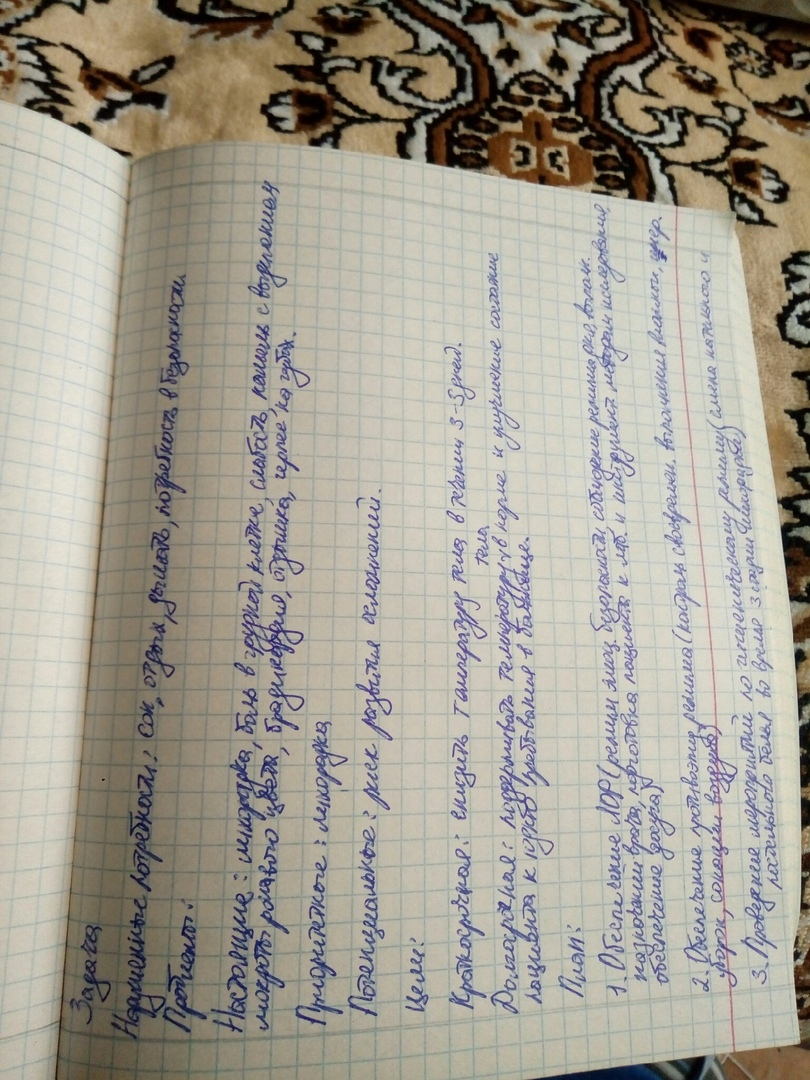 Задача
Нарушенные потребности: сон, отдых, дышать, потребность в безопасности
Проблемы:
Настоящие: лихорадка, боль в грудной клетке, слабость, кашель с выделением
мокроты ржавого цвета, брадикардия, одышка, герпес на губах.
Приоритетные: лихорадка
Потенциальные: риск развития осложнений.
Цели:
Краткосрочная: снизить температуру тела в течении 3-5 дней.
Долгосрочная: поддерживать температуру тела в норме и улучшение состояние
пациента к пребывания в больнице.
План:
1. Обеспечение ЛОР (режим эмоц. безопасности, соблюдение режима дня, выполн.
назначений врача, подготовка пациента к лаб. и инструмент. методам исследования
обеспечение досуга)
2. Обеспечение противоэпид режима (контроль своевремен. выполнения влажной,
уборки, санации воздуха)
3. Проведение мероприятий по гигиеническому режиму (смена нательного и
постельного белья во время 3 стадии лихорадки)